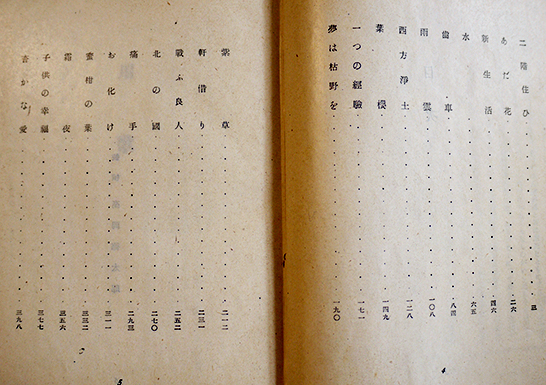 二階住ひ……三
あだ花……二六
新生活……四六
水……六五
齒車……八四
雨雲……一〇八
西方淨土……一二八
葉櫻……一四九
一つの經驗……一七一
夢は枯野を……一九〇
4
紫草……二一二
軒借り……二三一
戰ふ良人……二五二
北の國……二七〇
痛手……二九三
お化け……三一一
蜜柑の葉……三三二
霜夜……三五六
子供の幸福……三七七
書かな愛……三九八
5